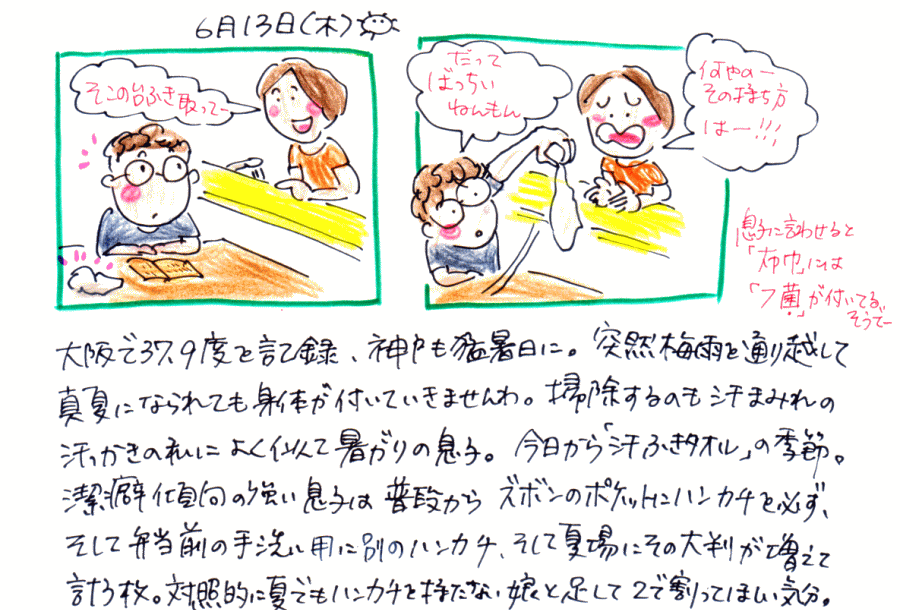 6月13日(木)
そこの台ふき取ってー
だって
ばっちい
ねんもん
何やのー
その持ち方
はー!!!
息子に言わせると
「布巾」には
「フ菌!」が付いてる、
そうでー
大阪で37.9度を記録、神戸も猛暑日に。突然梅雨を通り越して
真夏になられても身体が付いていきませんわ。掃除するのも汗まみれの
汗っかきの私によく似て暑がりの息子。今日から「汗ふきタオル」の季節。
潔癖傾向の強い息子は普段からズボンのポケットにハンカチを必ず、
そして弁当前の手洗い用に別のハンカチ、そして夏場にその大判が増えて
計3枚。対照的に夏でもハンカチを持たない娘と足して2で割ってほしい気分。